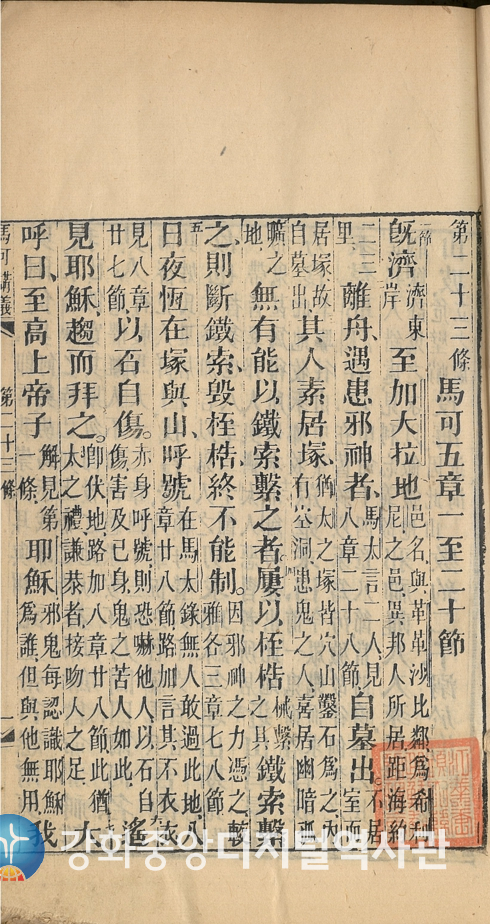 第二十三條 馬可五章一至二十節
一節 既濟 濟東岸 至加大拉地 邑名、與革革沙比鄰、爲希利尼之邑、異邦人所居、距海約
二三里、 離舟、遇患邪神者、 馬太言二人、見八章二十八節、 自墓出、 不居室而
居塚、故自墓出、 其人素居塚、 猶太之塚、皆穴山鑿石爲之、內有空洞、患鬼之人、喜居幽暗孤
曠之地、 無有能以鐵索繫之者、屢以桎梏 械繫之具 鐵索繫
之、則斷鐵索、毀桎梏、終不能制。 因邪神之力憑之、較雅各三章七八節
五 日夜恆在塚與山、呼號 在馬太錄無人敢過此地、八章廿八節、路加言其不衣衣、
見八章廿七節、 以石自傷。 赤身呼號、則恐嚇他人、以石自傷、傷害及已身、鬼之苦人如此、 遙
見耶穌、趨而拜之。 卽伏地、路加八章廿八節、此猶太之禮、謙恭者接吻人之足 大
呼曰、至高上帝子 解見第一條、 耶穌 邪鬼每認識耶穌爲誰、但與他無用、 我
馬可講義 第二十三條 一
강화중앙디지털역사관